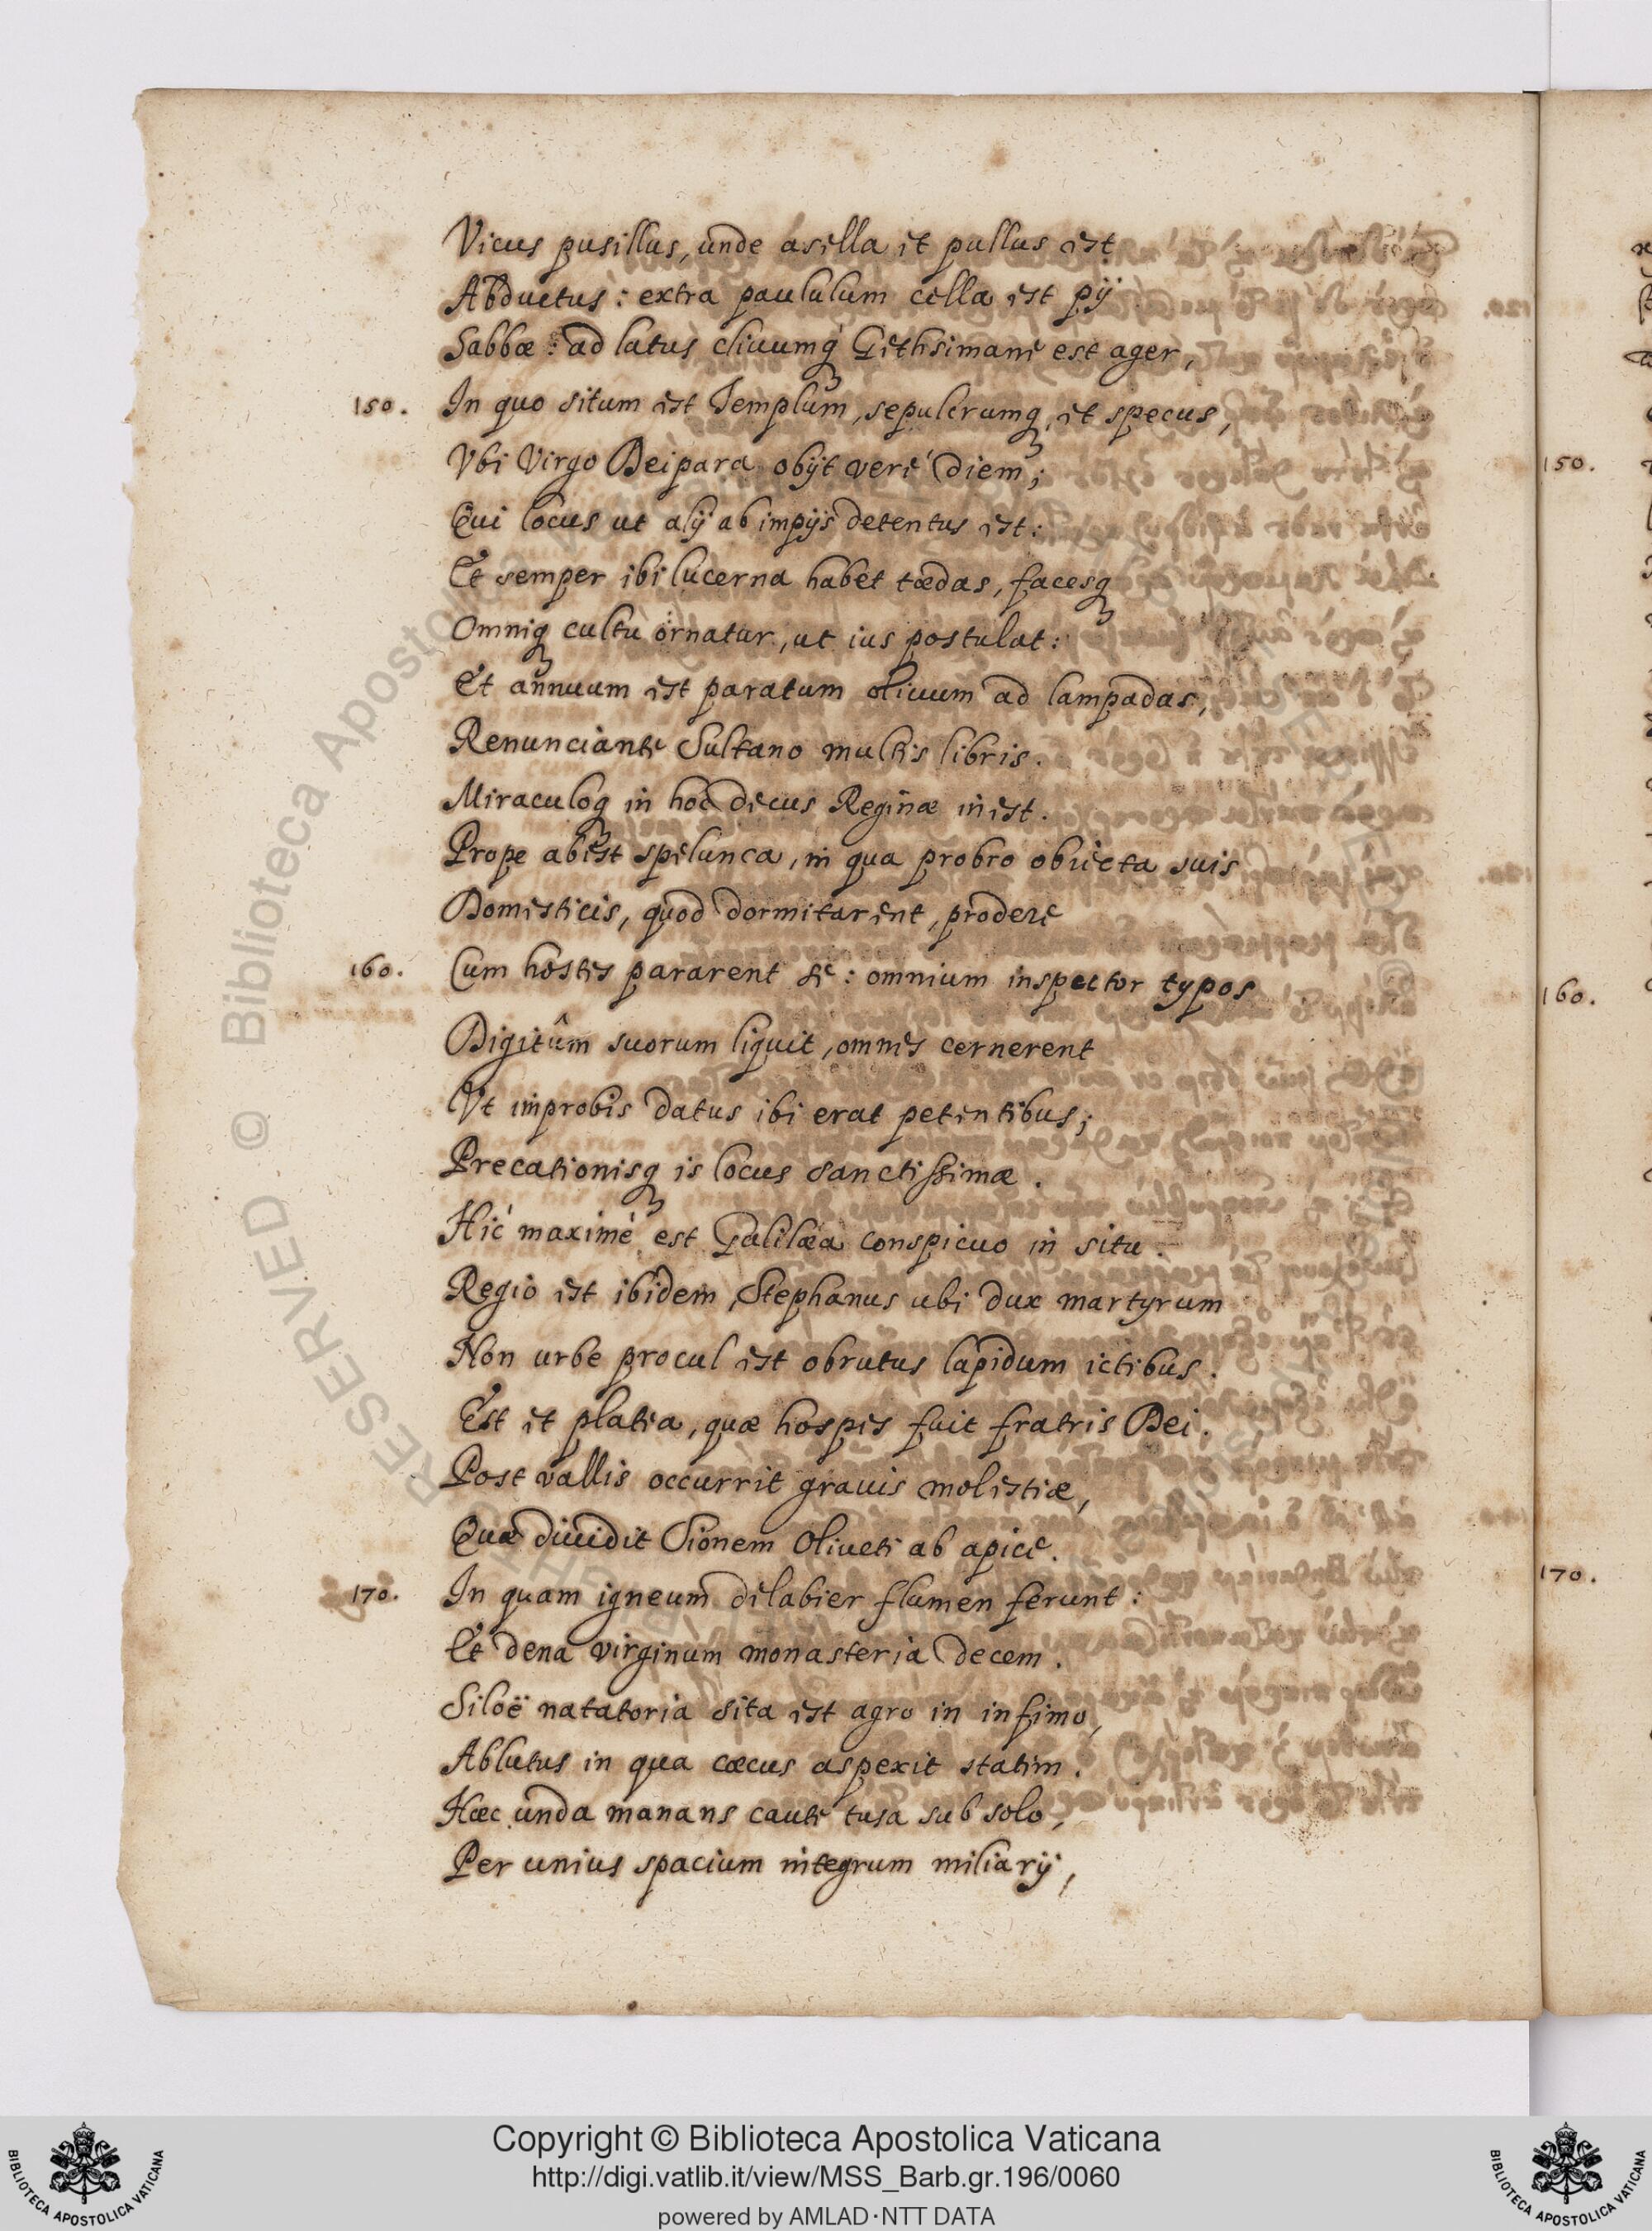 Vicus pusillus, unde asella et pullus est
Abductus: extra paululum cella est pij
Sabbæ: ad latus cliuumq; Gethsimane est ager,
150. In quo situm est Templum, sepulcrumq; et specus,
Vbi Virgo Deipara obijt verè diem;
Qui locus ut alij ab impijs detentus est:
Et semper ibi lucerna habet tædas, facesq;
Omniq; cultu ornatur, ut ius postulat:
Et annuum est paratum oliuum ad lampadas,
Renunciante Sultano multis libris.
Miraculoq; in hoc decus Reginæ inest.
Prope abest spelunca, in qua probro obiecta suis
Domesticis, quod dormitarent, prodere
160. Cum hostes pararent se: omnium inspector typos
Digitûm suorum liquit, omnes cernerent
Vt improbis datus ibi erat petentibus;
Precationisq; is locus sanctissimæ.
Hic maximè est Galilæa conspicuo in situ.
Regio est ibidem, Stephanus ubi dux martyrum
Non urbe procul est obrutus lapidum ictibus.
Est et platea, quæ hospes fuit fratris Dei.
Post vallis occurrit grauis molestiæ,
Quæ diuidit Sionem Oliueti ab apice.
170. In quam igneum delabier flumen ferunt:
Et dena virginum monasteria decem.
Siloë natatoria sita est agro in infimo,
Ablutus in qua cæcus aspexit statim.
Hæc unda manans caute tusa sub solo,
Per unius spacium integrum miliarij,
150.
160.
170.
© Biblioteca Apostolica Vaticana
RESERVED
Copyright © Biblioteca Apostolica Vaticana
http://digi.vatlib.it/view/MSS_Barb.gr.196/0060
powered by AMLAD·NTT DATA
BIBLIOTECA APOSTOLICA VATICANA
BIBLIOTECA APOSTOLICA VATICANA